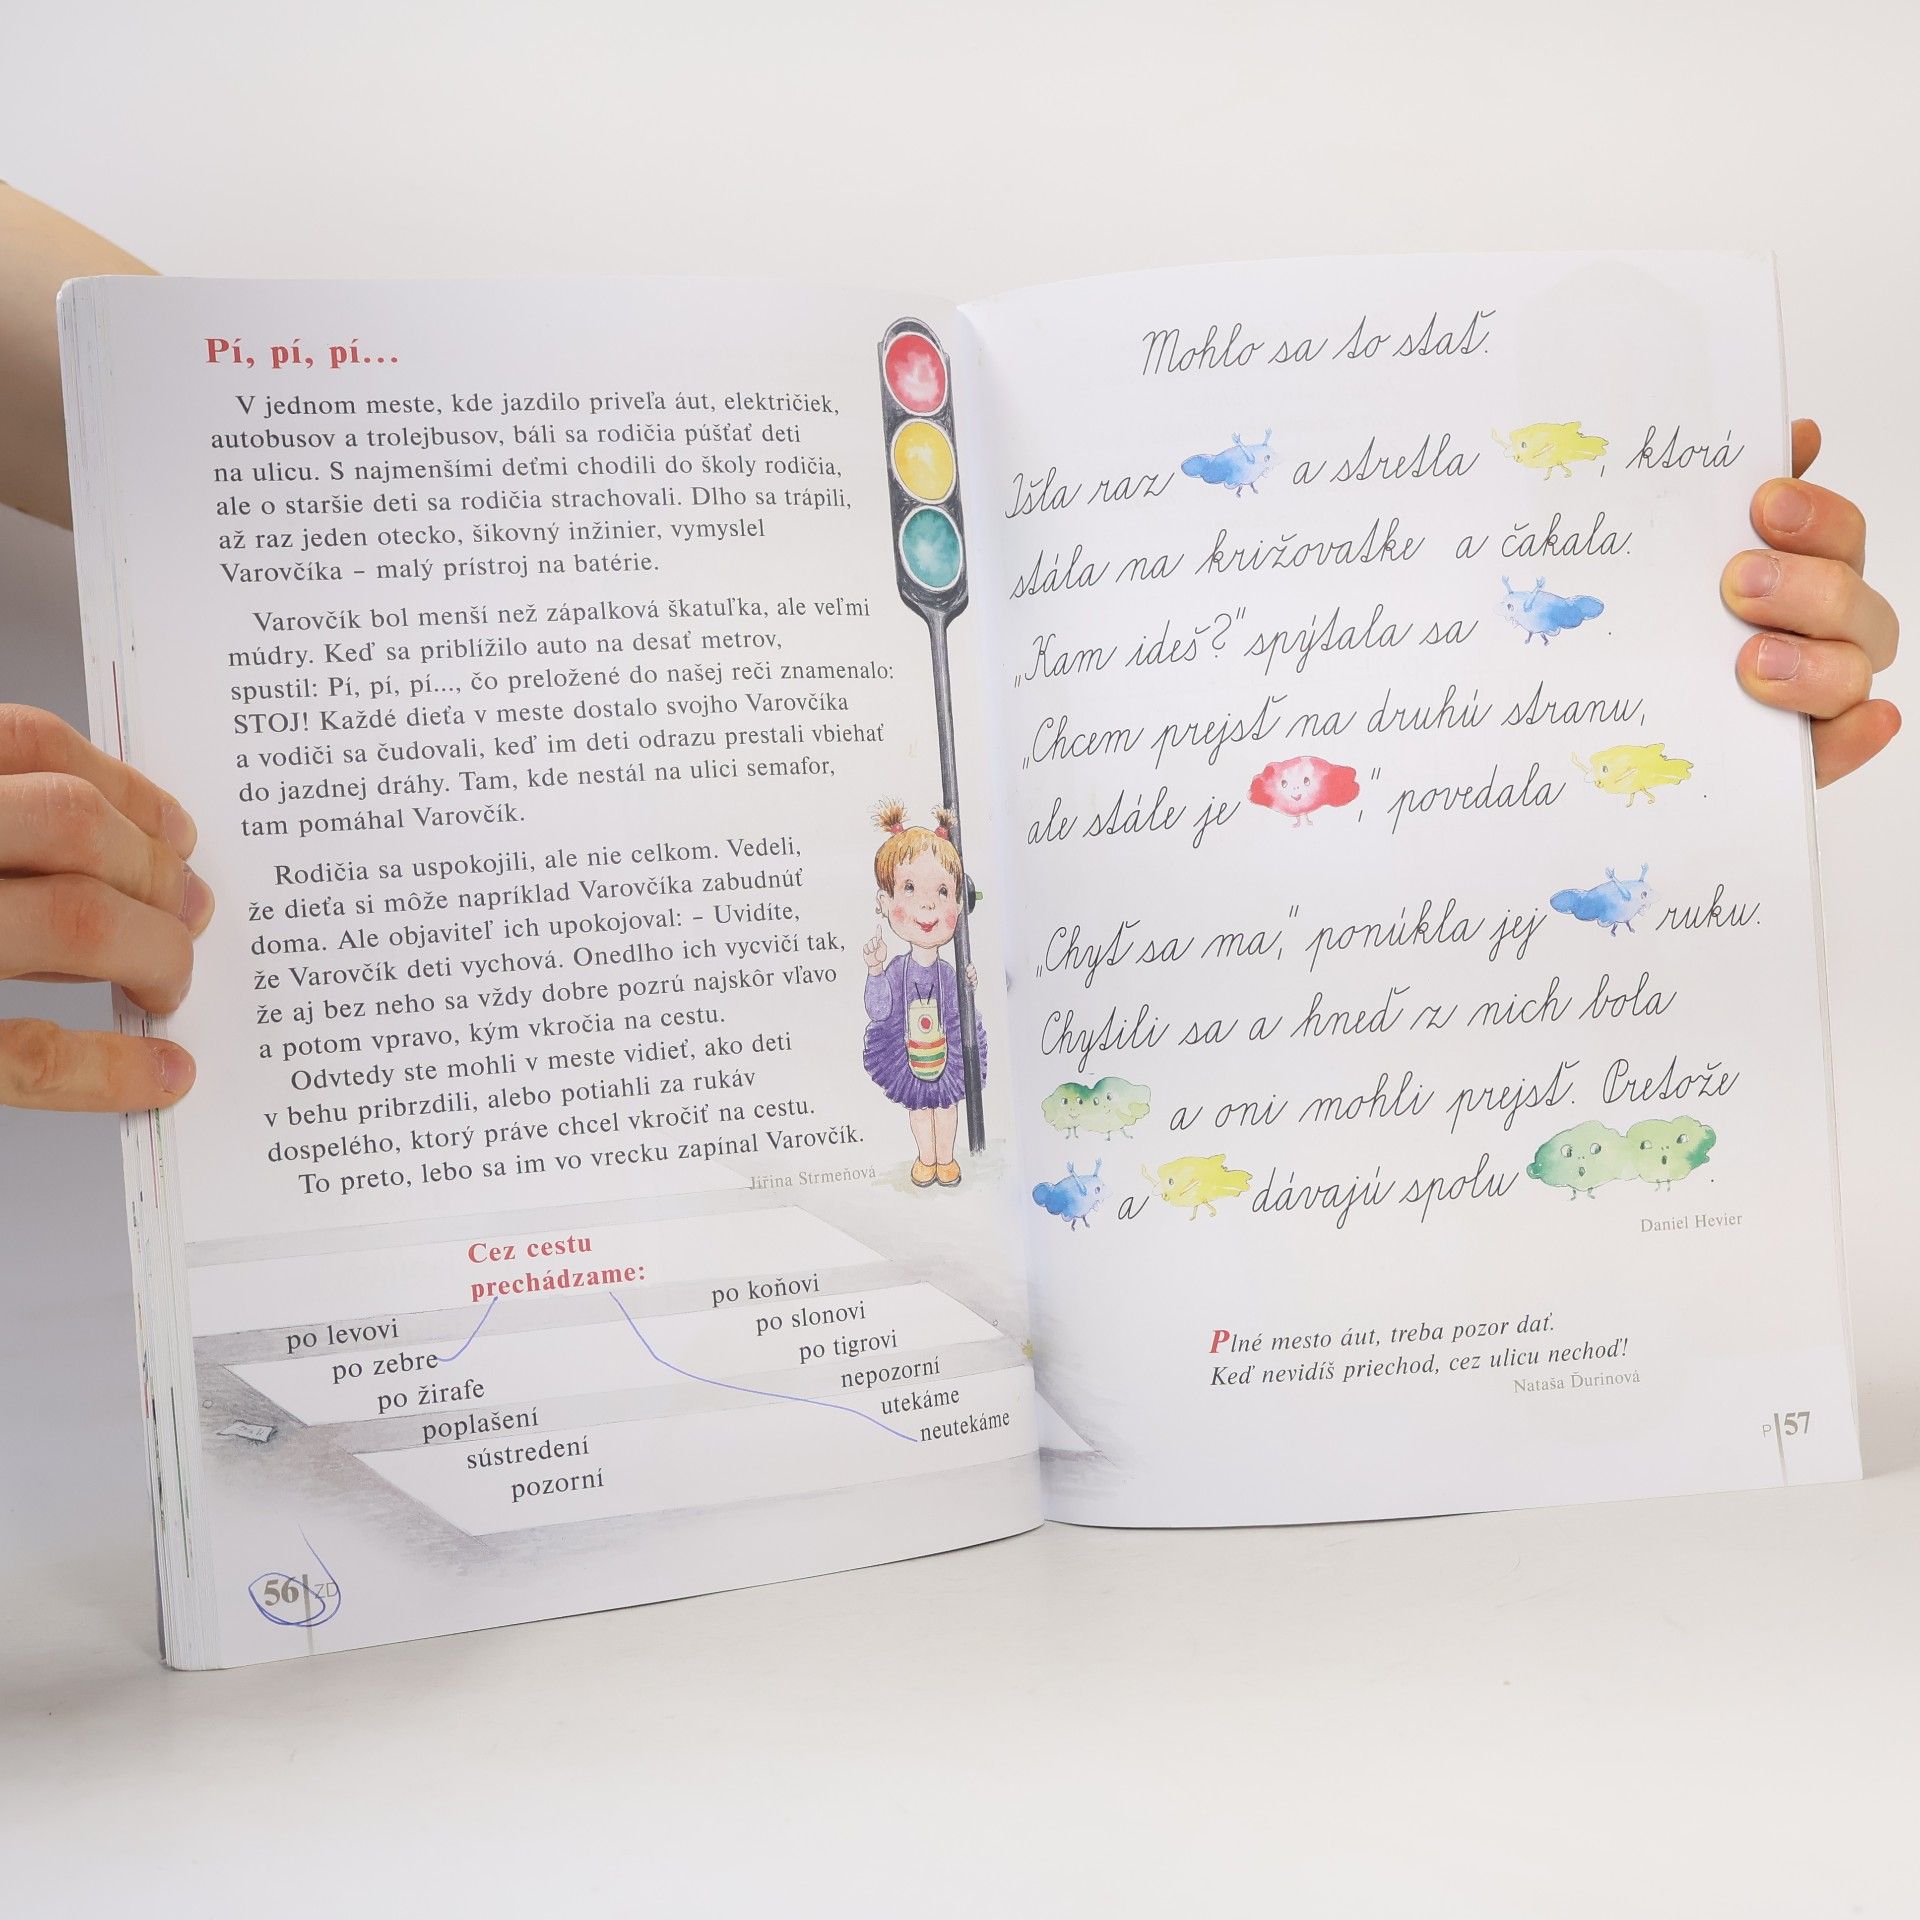 Pí, pí, pí...
V jednom meste, kde jazdilo priveľa áut, električiek,
autobusov a trolejbusov, báli sa rodičia púšťať deti
na ulicu. S najmenšími deťmi chodili do školy rodičia,
ale o staršie deti sa rodičia strachovali. Dlho sa trápili,
až raz jeden otecko, šikovný inžinier, vymyslel
Varovčíka – malý prístroj na batérie.
Varovčík bol menší než zápalková škatuľka, ale veľmi
múdry. Keď sa priblížilo auto na desať metrov,
spustil: Pí, pí, pí..., čo preložené do našej reči znamenalo:
STOJ! Každé dieťa v meste dostalo svojho Varovčíka
a vodiči sa čudovali, keď im deti odrazu prestali vbiehať
do jazdnej dráhy. Tam, kde nestál na ulici semafor,
tam pomáhal Varovčík.
Rodičia sa uspokojili, ale nie celkom. Vedeli,
že dieťa si môže napríklad Varovčíka zabudnúť
doma. Ale objaviteľ ich upokojoval: – Uvidíte,
že Varovčík deti vychová. Onedlho ich vycvičí tak,
že aj bez neho sa vždy dobre pozrú najskôr vľavo
a potom vpravo, kým vkročia na cestu.
Odvtedy ste mohli v meste vidieť, ako deti
v behu pribrzdili, alebo potiahli za rukáv
dospelého, ktorý práve chcel vkročiť na cestu.
To preto, lebo sa im vo vrecku zapínal Varovčík.
Jiřina Strmeňová
Cez cestu
prechádzame:
po levovi
po zebre
po žirafe
poplašení
sústredení
pozorní
po koňovi
po slonovi
po tigrovi
nepozorní
utekáme
neutekáme
56 ZD
Mohlo sa to stať.
Išla raz a stretla , ktorá
stála na križovatke a čakala.
„Kam ideš?" spýtala sa .
„Chcem prejsť na druhú stranu,
ale stále je ," povedala .
„Chyť sa ma," ponúkla jej ruku.
Chytili sa a hneď z nich bola
a oni mohli prejsť. Pretože
a dávajú spolu .
Daniel Hevier
Plné mesto áut, treba pozor dať.
Keď nevidíš priechod, cez ulicu nechoď!
Nataša Ďurinová
P 57